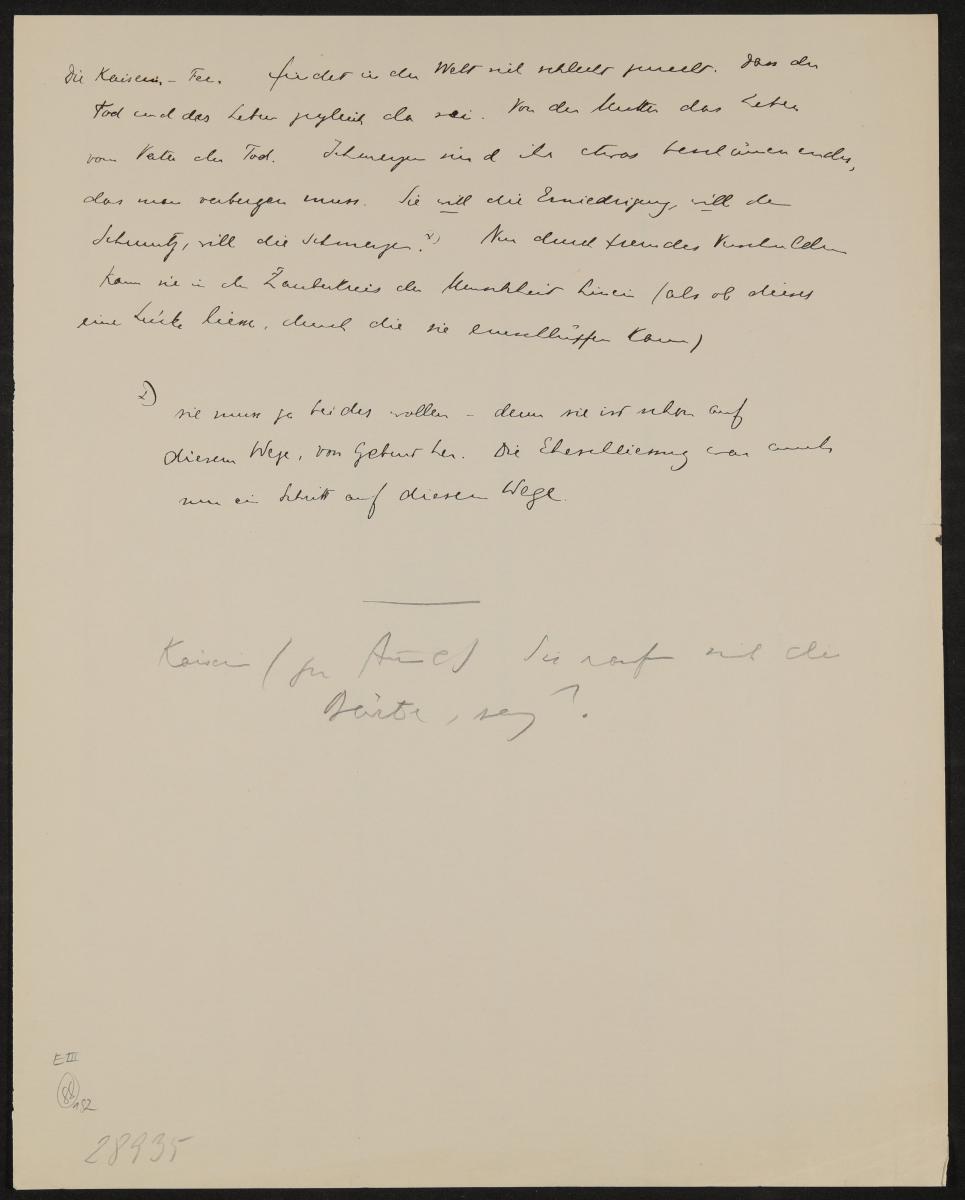 Die Kaiserin-Fee. findet in der Welt sich schlecht zurecht. Dass der
Tod und das Leben zugleich da sei. Von der Mutter das Leben
vom Vater der Tod. Schmerzen sind ihr etwas beschämendes,
das man verbergen muss. Sie will die Erniedrigung, will den
Schmutz, will die Schmerzen. x) Nur durch fremdes Verschulden
kann sie in den Zauberkreis der Menschheit hinein (als ob dieses
eine Lücke liesse, durch die sie hineinschlüpfen kann)
x) sie muss ja beides wollen – denn sie ist schon auf
diesem Wege, von Geburt her. Die Eheschliessung war auch
nur ein Schritt auf diesem Wege.
Kaiserin (zur Amme) Sie rauft sich die
Bärte, sag?
E III
88
182
28935